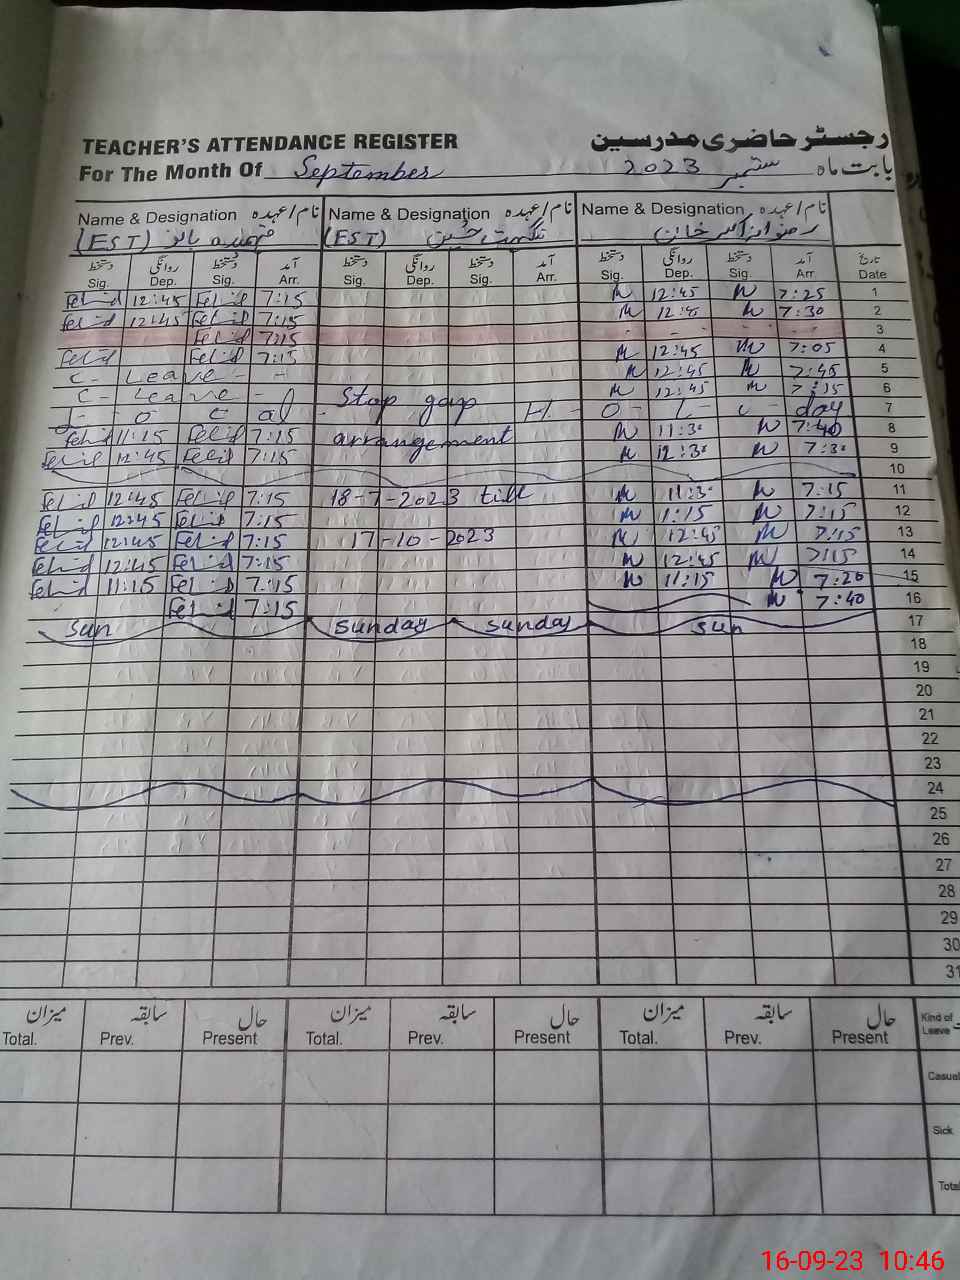 TEACHER'S ATTENDANCE REGISTER رجسٹر حاضری مدرسین
For The Month Of September 2023 بابت ماہ ستمبر
Name & Designation نام/عہدہ Name & Designation نام/عہدہ Name & Designation نام/عہدہ
(EST) فہمیدہ بانو (EST) نگہت حسین رضوانہ اکبر خان
دستخط روانگی دستخط آمد دستخط روانگی دستخط آمد دستخط روانگی دستخط آمد تاریخ
Sig. Dep. Sig. Arr. Sig. Dep. Sig. Arr. Sig. Dep. Sig. Arr. Date
12:45 7:15 12:45 7:25 1
12:45 7:15 7:30 2
7:15 - - - - 3
7:15 12:45 7:05 4
C- Leave - 12:45 7:45 5
C- Leave - Stop gap 12:45 7:15 6
L - o c al - H - O - L - i - day 7
11:15 7:15 arrangement 11:30 7:40 8
12:45 7:15 12:30 7:30 9
10
12:45 7:15 18-7-2023 till 11:30 7:15 11
12:45 7:15 1:15 7:15 12
12:45 7:15 17-10-2023 12:45 7:15 13
12:45 7:15 12:45 7:15 14
11:15 7:15 11:15 7:20 15
7:15 7:40 16
Sun Sunday Sunday Sun 17
18
19
20
21
22
23
24
25
26
27
28
29
30
31
میزان سابقہ حال میزان سابقہ حال میزان سابقہ حال Kind of
Total. Prev. Present Total. Prev. Present Total. Prev. Present Leave
Casual
Sick
Total
16-09-23 10:46